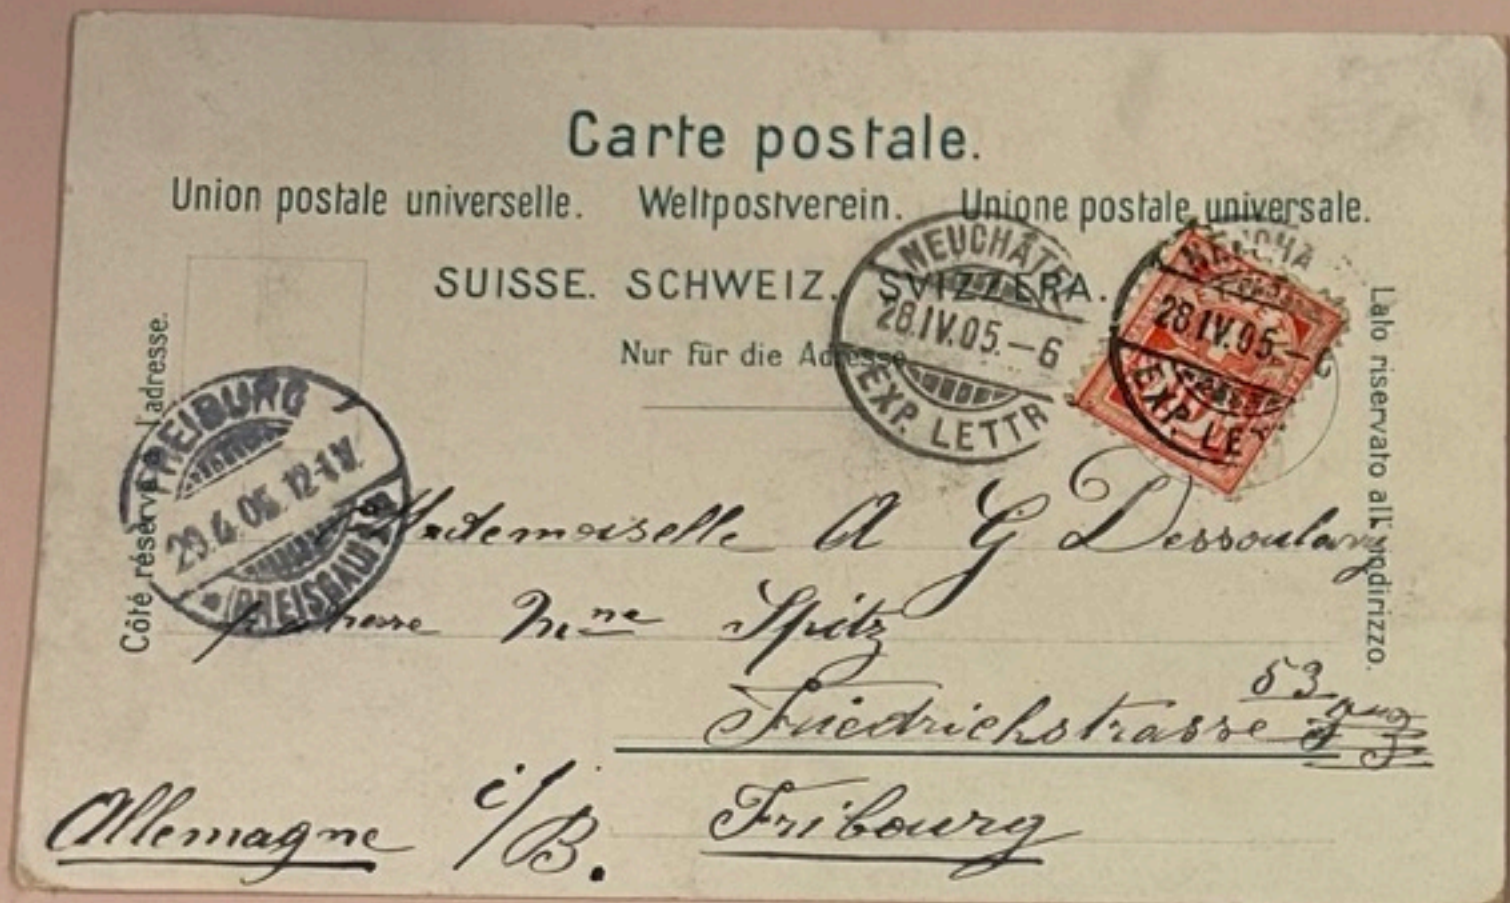 Carte postale.
Union postale universelle. Weltpostverein. Unione postale universale.
SUISSE. SCHWEIZ. SVIZZERA.
Nur für die Adresse
Côté réservé à l'adresse.
Lato riservato all'indirizzo.
NEUCHÂTEL
28.IV.05.–6
EXP. LETTR
NEUCHA
28.IV.05.–6
EXP. LE
FREIBURG
29.4.05. 12-1 V.
(BREISGAU)
Mademoiselle A G Dessoulavy
p. adresse Mme Spitz
Friedrichstrasse 53
Allemagne i/B. Fribourg